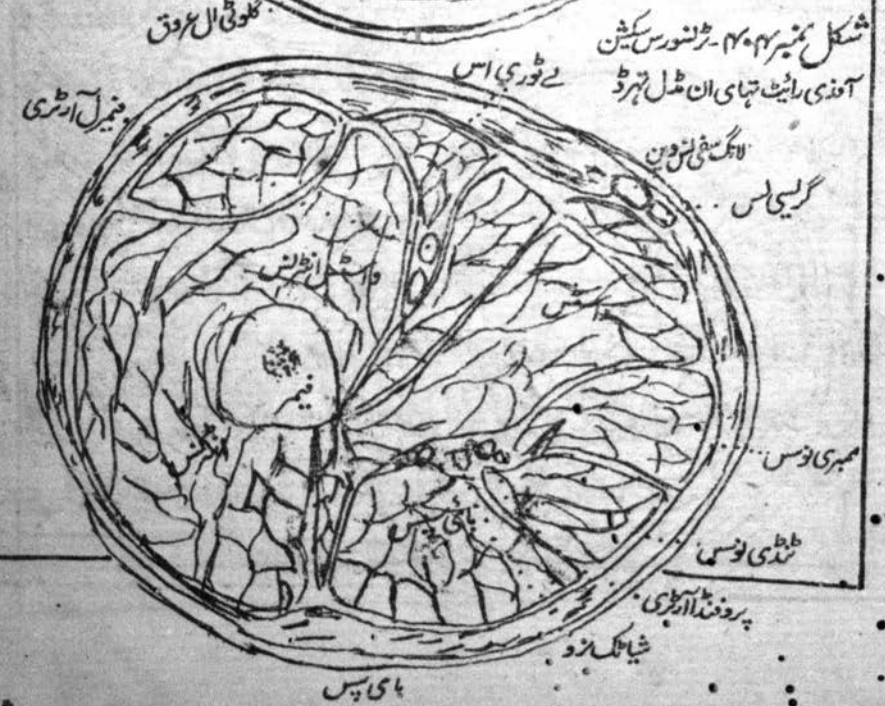 گلوٹی ال عروق
شکل نمبر ۴۰۴ - ٹرنسورس سکیشن
آف دی رائیٹ تہای ان مڈل تہرڈ
فیمرل آرٹری
لانگ سفی نس وین
گریسی لس
واسٹس انٹرنس
فیمر
بائی سپس
ممبری نوسس
ٹنڈی نوسس
پروفنڈا آرٹری
شیاٹک نرو
بای سپس